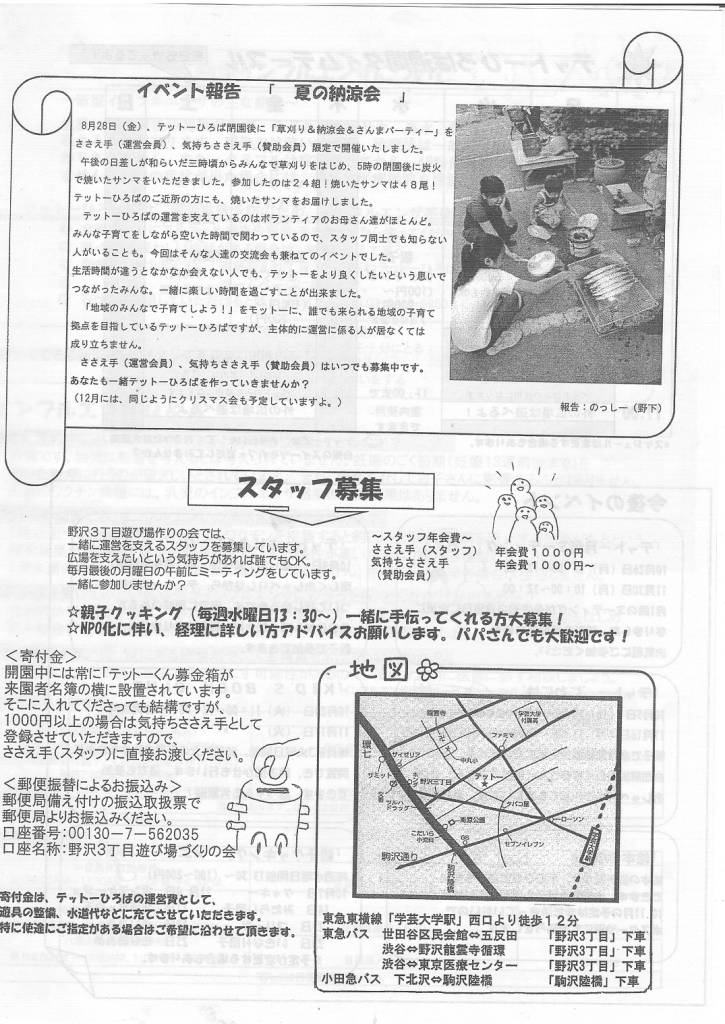 イベント報告　「　夏の納涼会　」
8月28日（金）、テットーひろば閉園後に「草刈り＆納涼会＆さんまパーティー」を
ささえ手（運営会員）、気持ちささえ手（賛助会員）限定で開催いたしました。
午後の日差しが和らいだ三時頃からみんなで草刈りをはじめ、5時の閉園後に炭火
で焼いたサンマをいただきました。参加したのは２４組！焼いたサンマは４８尾！
テットーひろばのご近所の方にも、焼いたサンマをお届けしました。
テットーひろばの運営を支えているのはボランティアのお母さん達がほとんど。
みんな子育てをしながら空いた時間で関わっているので、スタッフ同士でも知らない
人がいることも。今回はそんな人達の交流会も兼ねてのイベントでした。
生活時間が違うとなかなか会えない人でも、テットーをより良くしたいという思いで
つながったみんな。一緒に楽しい時間を過ごすことが出来ました。
「地域のみんなで子育てしよう！」をモットーに、誰でも来られる地域の子育て
拠点を目指しているテットーひろばですが、主体的に運営に係る人が居なくては
成り立ちません。
ささえ手（運営会員）、気持ちささえ手（賛助会員）はいつでも募集中です。
あなたも一緒テットーひろばを作っていきませんか？
（12月には、同じようにクリスマス会も予定していますよ。）
報告：のっしー（野下）
スタッフ募集
野沢３丁目遊び場作りの会では、
一緒に運営を支えるスタッフを募集しています。
広場を支えたいという気持ちがあれば誰でもOK。
毎月最後の月曜日の午前にミーティングをしています。
一緒に参加しませんか？
～スタッフ年会費～
ささえ手（スタッフ）　年会費１０００円
気持ちささえ手　年会費１０００円～
（賛助会員）
☆親子クッキング（毎週水曜日13：30～）一緒に手伝ってくれる方大募集！
☆NPO化に伴い、経理に詳しい方アドバイスお願いします。パパさんでも大歓迎です！
＜寄付金＞
開園中には常に「テットーくん募金箱が
来園者名簿の横に設置されています。
そこに入れてくださっても結構ですが、
1000円以上の場合は気持ちささえ手として
登録させていただきますので、
ささえ手（スタッフ）に直接お渡しください。
＜郵便振替によるお振込み＞
郵便局備え付けの振込取扱票で
郵便局よりお振込みください。
口座番号：00130－7－562035
口座名称：野沢３丁目遊び場づくりの会
寄付金は、テットーひろばの運営費として、
遊具の整備、水道代などに充てさせていただきます。
特に使途にご指定がある場合はご希望に沿わせて頂きます。
地図
龍雲寺
学芸大学
附属高
環七
ファミマ
サイゼリア
中丸小
サミット
野沢三丁目
テットー
★
タバコ屋
ローソン
ツルハ
ドラッグ
こだいら
小児科
セブンイレブン
駒沢通り
駒沢陸橋
東急東横線「学芸大学駅」西口より徒歩１２分
東急バス　世田谷区民会館⇔五反田　「野沢3丁目」下車
渋谷⇔野沢龍雲寺循環　「野沢3丁目」下車
渋谷⇔東京医療センター　「野沢3丁目」下車
小田急バス　下北沢⇔駒沢陸橋　「駒沢陸橋」下車